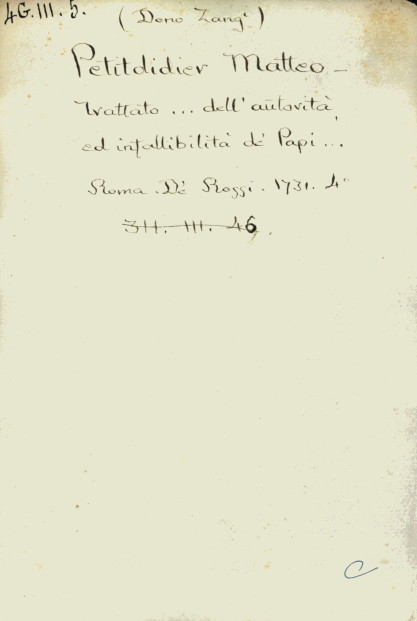 4G.III.5. (Dono Zangi)
Petitdidier Matteo -
Trattato ... dell'autorità
ed infallibilità de' Papi ...
Roma. De' Rossi. 1731. 4°
3H. III. 46.
C